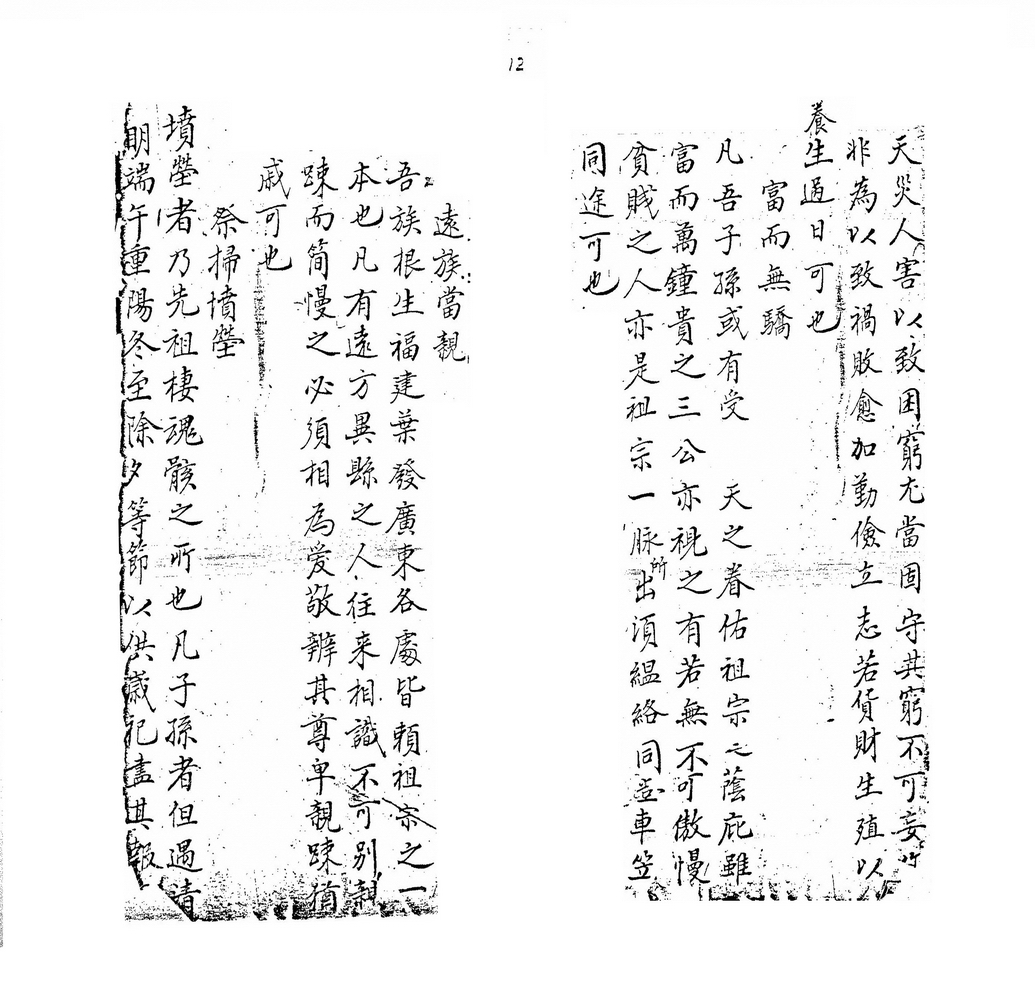 12
天災人害以致困窮尤當固守其窮不可妄作
非為以致禍敗愈加勤儉立志若貨財生殖以
養生過日可也
富而無驕
凡吾子孫或有受　天之眷佑祖宗之蔭庇雖
富而萬鐘貴之三公亦視之有若無不可傲慢
貧賤之人亦是祖宗一脉所出須縕絡同並車笠
同途可也
遠族當親
吾族根生福建葉發廣東各處皆賴祖宗之一
本也凡有遠方異縣之人往来相識不可別親
踈而簡慢之必須相為爱敬辨其尊卑親踈猶
戚可也
祭掃墳塋
墳塋者乃先祖棲魂骸之所也凡子孫者但遇清
明端午重陽冬至除夕等節以供歲祀盡其報